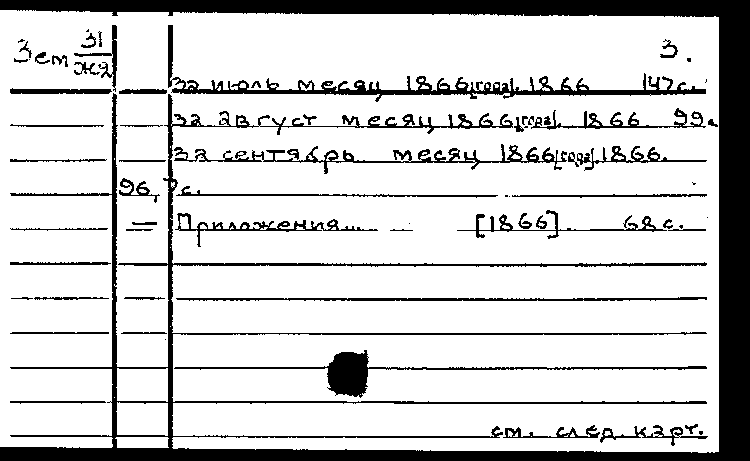 Зем 31/Ж2 3.
за июль месяц 1866[года]. 1866 147с.
за август месяц 1866[года]. 1866. 99с.
за сентябрь месяц 1866[года]. 1866.
96, 7с.
— Приложения... [1866]. 68с.
см. след. карт.